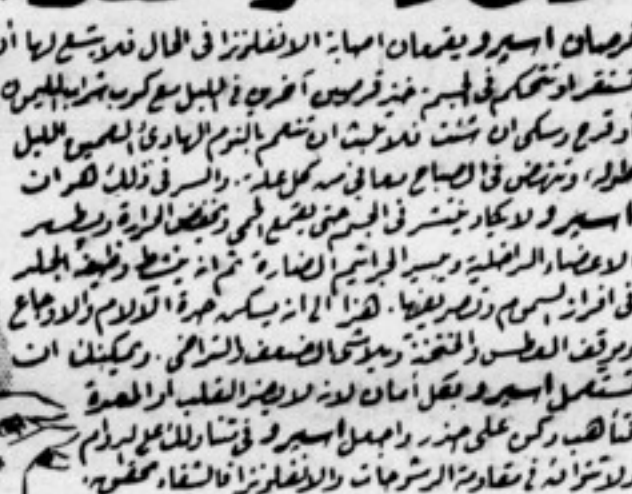 قرصان اسبرو يقمعان اصابة الانفلونزا فى الحال فلا يتسع لها أن
تستقر او تتحكم فى الجسم. خذ قرصين آخرين فى الليل مع كوب شراب الليمون
أو قدح وسكى ان شئت فلا تلبث ان تنعم بالنوم الهادئ العميق الليل
طوله، وتنهض فى الصباح معافى من كل علة. والسر فى ذلك هو ان
اسبرو لا يكاد ينتشر فى الجسم حتى يقمع الحمى ويخفض الحرارة ويطهر
الاعضاء الداخلية ويبيد الجراثيم الضارة ثم انه ينشط وظيفة الجلد
فى افراز السموم وتصريفها. هذا الى انه يسكن حدة الآلام والاوجاع
ويوقف العطس والخنخنة ويلاشى الضعف والتراخى. ويمكنك ان
تستعمل اسبرو بكل أمان لانه لا يضر القلب او المعدة
فتأهب وكن على حذر واجعل اسبرو فى تناولك على الدوام
ولا تتوانَ فى مقاومة الرشوحات والانفلونزا فالشفاء محقق.